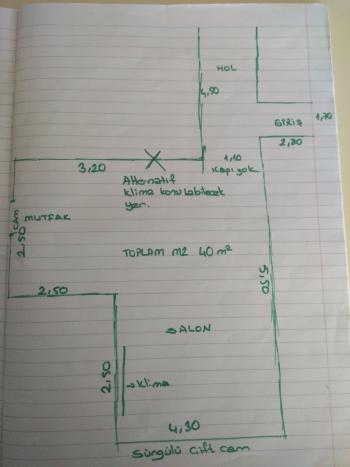 HOL
4,50
GİRİŞ
1,70
2,80
3,20
1,10
Kapı yok
Alternatif
klima konulabilecek
yer.
CAM
MUTFAK
2,50
TOPLAM M2 40 m²
5,50
2,50
SALON
2,50
→Klima
4,30
Sürgülü çift cam